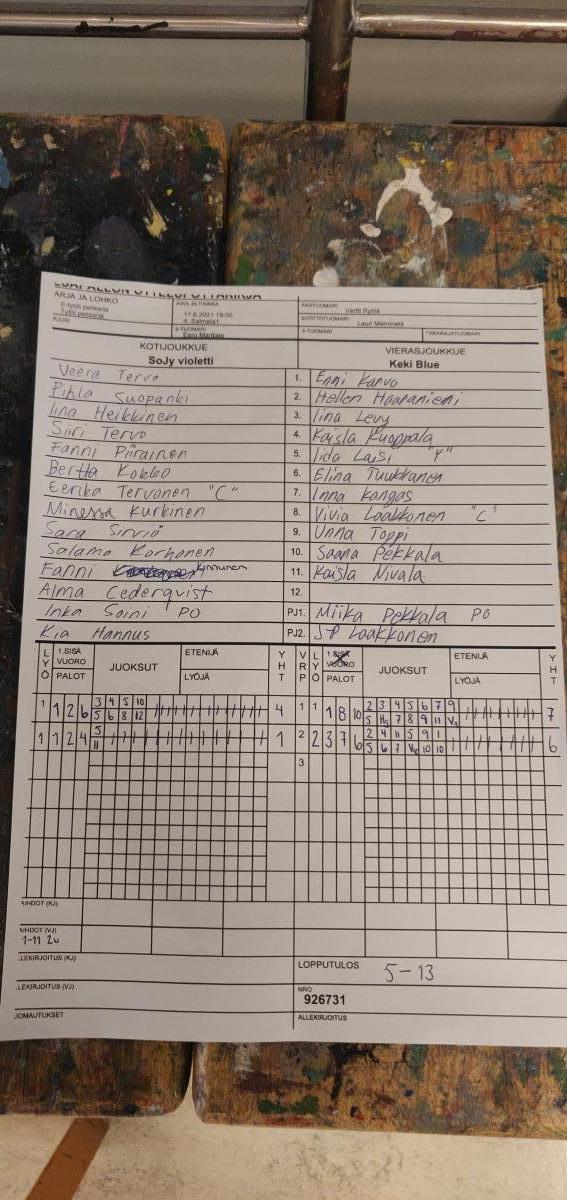 ARJA JA LOHKO
E-tytöt pelisarja
Tytöt pelisarja
AIKA JA PAIKKA
17.8.2021 19:00
4. Salmela1
PÄÄTUOMARI
Vertti Rytilä
SYÖTTÖTUOMARI
Lauri Määrmelä
2-TUOMARI
Eero Marttala
3-TUOMARI
TAKARAJATUOMARI
KOTIJOUKKUE
SoJy violetti
VIERASJOUKKUE
Keki Blue
Veera Tervo 1. Enni Karvo
Pihla Suopanki 2. Hellen Haaraniemi
Iina Heikkinen 3. Iina Levy
Siiri Tervo 4. Kaisla Kuoppala
Fanni Piirainen 5. Iida Laisi "Y"
Bertta Kokko 6. Elina Tuukkanen
Eerika Tervonen "C" 7. Inna Kangas
Minessa Kurkinen 8. Vivia Laakkonen "C"
Sara Sirviö 9. Unna Toppi
Salama Korhonen 10. Saana Pekkala
Fanni Kinnunen 11. Kaisla Nivala
Alma Cederqvist 12.
Inka Soini PO PJ1. Miika Pekkala PO
Kia Hannus PJ2. JP Laakkonen
LYÖ 1.SISÄ VUORO PALOT JUOKSUT ETENIJÄ LYÖJÄ YHT VRP LYÖ 1.SISÄ VUORO PALOT JUOKSUT ETENIJÄ LYÖJÄ YHT
1 1 2 6 3 4 5 10 4 1 1 1 8 10 2 3 4 5 6 7 9 7
5 6 8 12
1 1 2 4 5 1 2 2 3 7 6 2 4 11 5 9 1 6
11
3
VAIHDOT (VJ)
1-11 2v
LOPPUTULOS 5-13
NRO
926731
ALLEKIRJOITUS